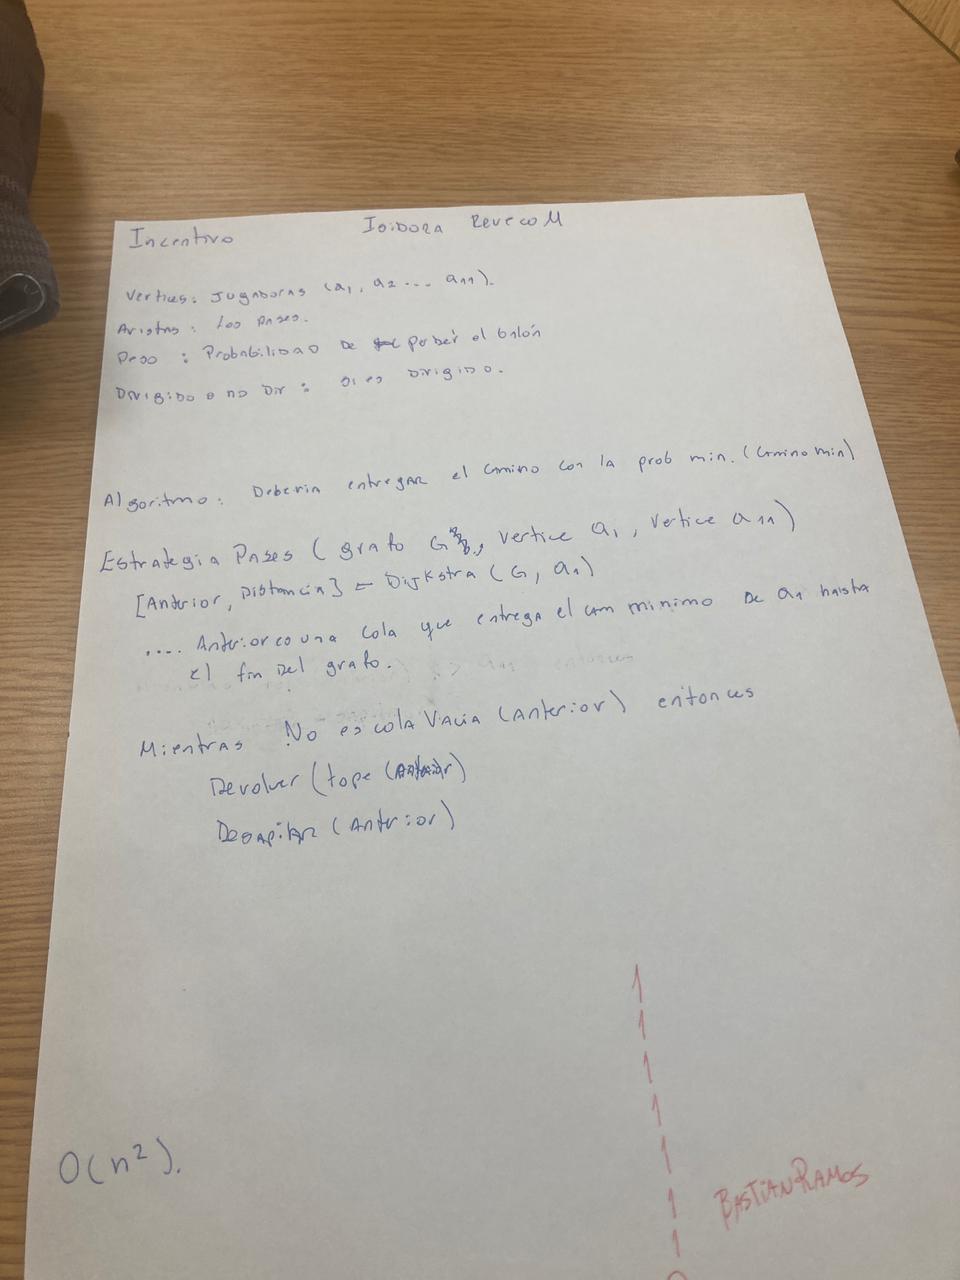 Incentivo Isidora Reveco M
Vertices: Jugadoras (a1, a2 ... a11).
Aristas: Los Pases.
Peso: Probabilidad de perder el balón
Dirigido o no Dir: si es Dirigido.
Algoritmo: Deberia entregar el camino con la prob min. (camino min)
Estrategia Pases (grafo G, Vertice a1, Vertice a11)
[Anterior, Distancia] ← Dijkstra (G, a1)
.... Anterior es una cola que entrega el cam minimo de a1 hasta
el fin del grafo.
Mientras No es cola Vacia (Anterior) entonces
Devolver (tope (Anterior)
Desapilar (Anterior)
1
1
1
1
1
1
1
O(n²).
BASTIAN RAMOS